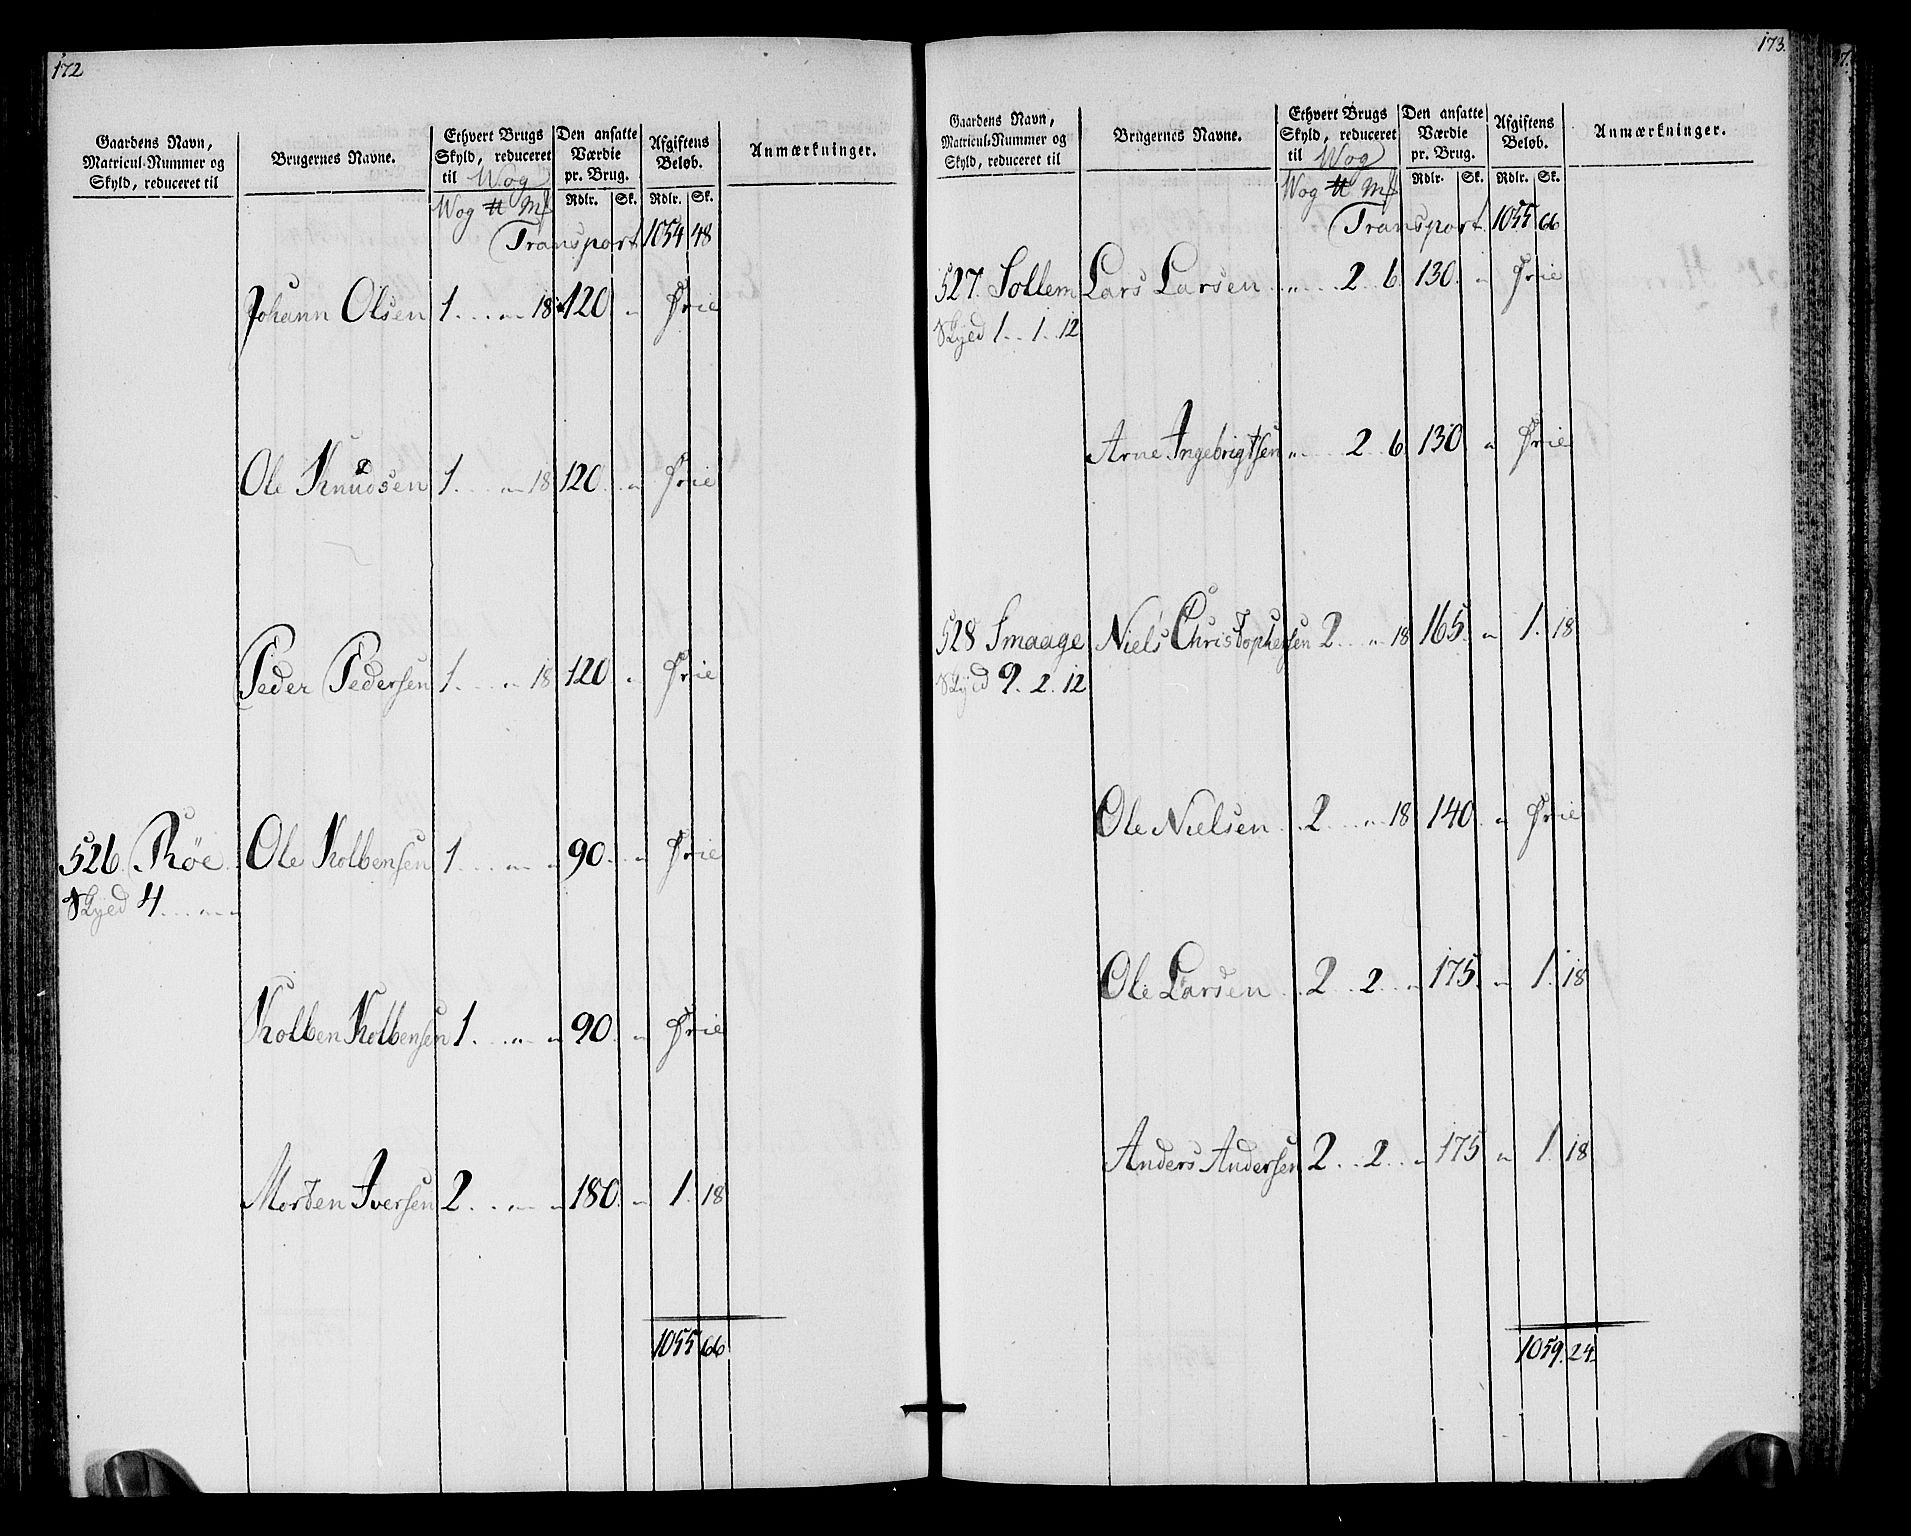 172
Gaardens Navn, Matricul-Nummer og Skyld, reduceret til
Brugernes Navne.
Ethvert Brugs Skyld, reduceret til Wog
Den ansatte Værdie pr. Brug.
Afgiftens Beløb.
Anmærkninger.
Wog ℔ Mk Rdlr. Sk. Rdlr. Sk.
Transport 1054 48
Johann Olsen 1 . . . „ 18 120 „ Frie
Ole Knudsen 1 . . . „ 18 120 „ Frie
Peder Pedersen 1 . . . „ 18 120 „ Frie
526 Røe Ole Kolbensen 1 . . . „ „ 90 „ Frie
Skyld 4 . . . „ „
Kolben Kolbensen 1 . . „ „ 90 „ Frie
Morten Iversen 2 . . „ „ 180 „ 1. 18
1055 66
173.
Gaardens Navn, Matricul-Nummer og Skyld, reduceret til
Brugernes Navne.
Ethvert Brugs Skyld, reduceret til Wog
Den ansatte Værdie pr. Brug.
Afgiftens Beløb.
Anmærkninger.
Wog ℔ Mk Rdlr. Sk. Rdlr. Sk.
Transport 1055 66
527. Sollem Lars Larsen „ . . 2 . 6 130 „ Frie
Skyld 1 . . 1 . 12
Arne Ingebrigtsen „ . . . 2 . 6 130 „ Frie
528 Smaage Niels Christophersen 2 . . „ 18 165 „ 1. 18
Skyld 9 . 2 . 12
Ole Nielsen 2 . . . „ 18 140 „ Frie
Ole Larsen 2 . . 2 . . „ 175 „ 1. 18
Anders Andersen 2 . . 2 . . „ 175 „ 1. 18
1059. 24.